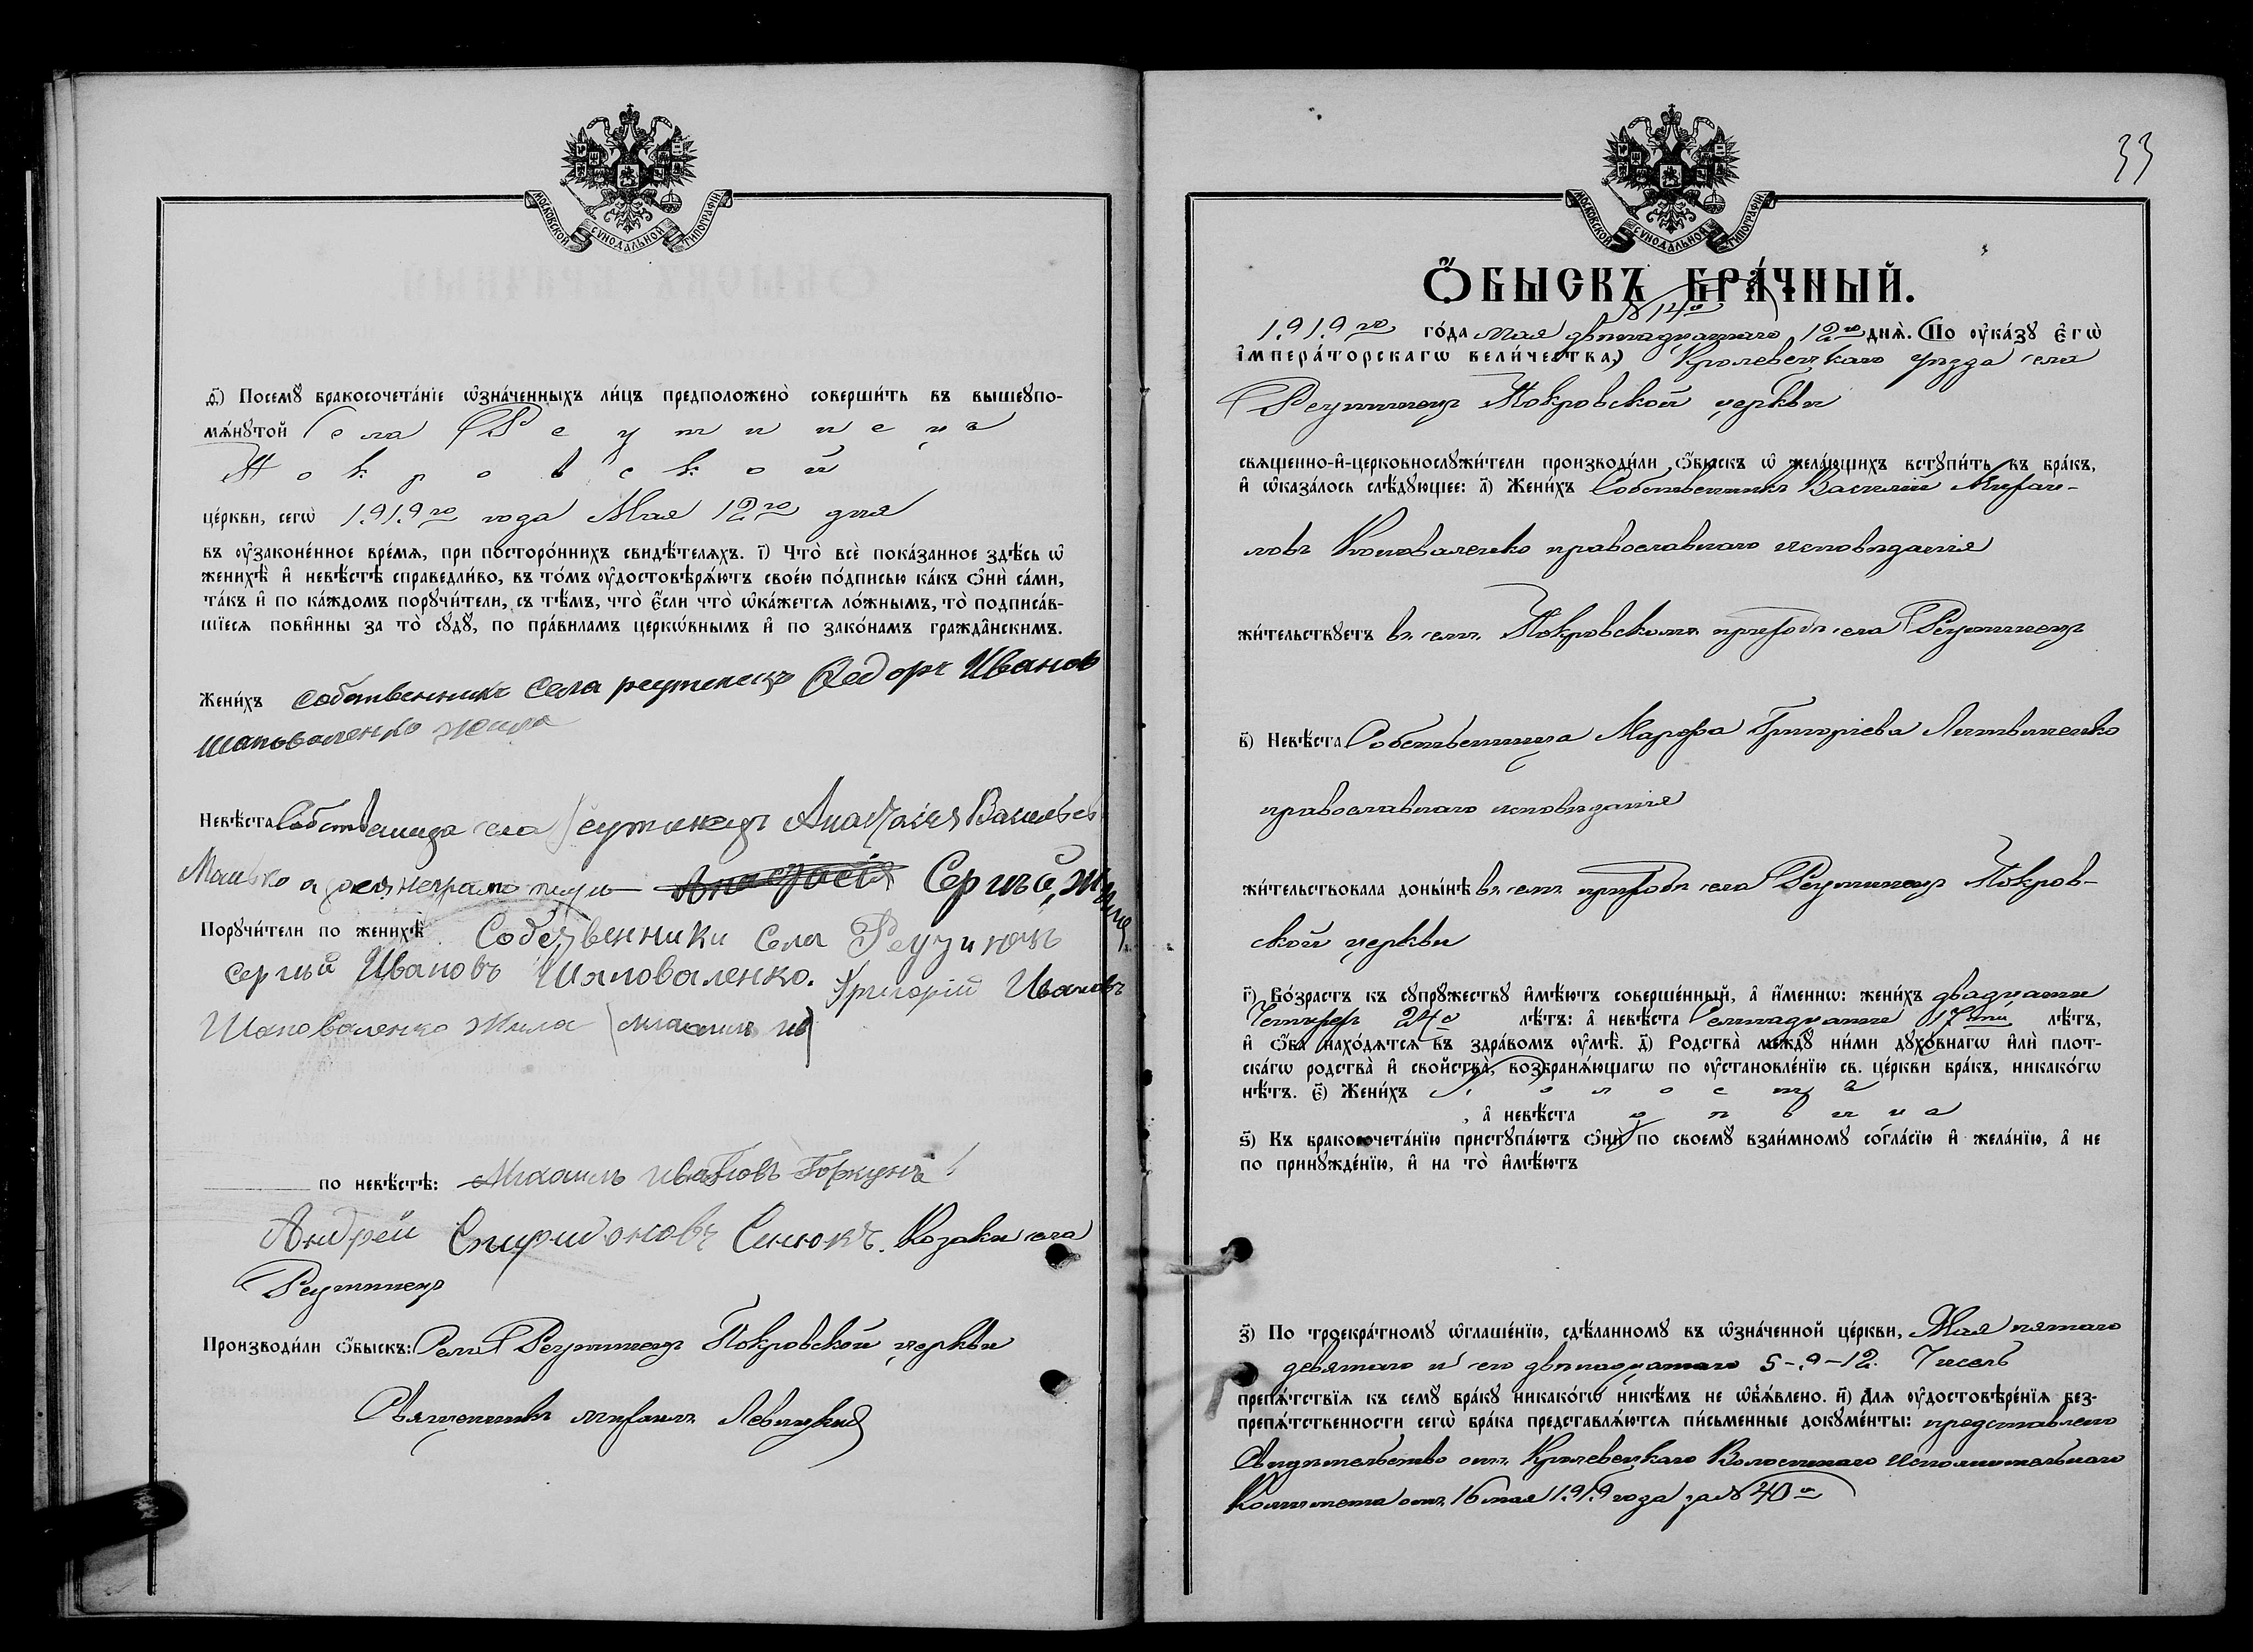 МОСКОВСКОЙ СѴНОДАЛЬНОЙ ТИПОГРАФІИ
д҃) Посемꙋ̀ бракосочета́нїе ѡ҆зна́ченныхъ ли́цъ предположено̀ соверши́ть въ вышеꙋпо-
мѧ́нꙋтой Села Реутинецъ
Покровской
це́ркви, сегѡ̀ 1919го года Мая 12го дня
въ ᲂу҆законе́нное вре́мѧ, при посторо́ннихъ свидѣ́телѧхъ. і҃) Что̀ всѐ пока́занное здѣ́сь ѡ҆
женихѣ̀ и҆ невѣ́стѣ справедли́во, въ то́мъ ᲂу҆достовѣрѧ́ютъ свое́ю по́дписью ка́къ ѻ҆нѝ са́ми,
та́къ и҆ по ка́ждомъ порꙋчи́тели, съ тѣ́мъ, что̀ є҆́сли что̀ ѡ҆ка́жетсѧ ло́жнымъ, то̀ подписа́в-
шїесѧ пови́нны за то̀ сꙋдꙋ̀, по пра́виламъ церко́внымъ и҆ по зако́намъ гражда́нскимъ.
Жени́хъ собственникъ Села реутенецъ Федоръ Иванов
Шаповаленко
Невѣ́ста Собственица села Реутинецъ Анастасія Васильев
Манько а Сергѣй
Порꙋчи́тели по женихѣ̀ Собственники Села
Сергѣй Ивановъ Шаповаленко. Григорій Ивановъ
Шаповаленко
по невѣ́стѣ: Михаилъ Ивановъ Горкунъ
Андрей Спиридоновъ Сенюкъ. Козаки села
Реутинецъ
Производи́ли ѻ҆́быскъ: Села Реутинецъ Покровской церкви
Священникъ Михаилъ Левицкій
33
МОСКОВСКОЙ СѴНОДАЛЬНОЙ ТИПОГРАФІИ
Ѻ҆́БЫСКЪ БРА́ЧНЫЙ.
№ 14й
1919го го́да мая двѣнадцатаго 12го днѧ̀. (По ᲂу҆ка́зꙋ є҆гѡ̀
і҆мпера́торскагѡ вели́чества,) Кролевецкаго уѣзда села
Реутинецъ Покровской церкви
свѧще́нно-и҆-церковнослꙋжи́тели производи́ли ѻ҆́быскъ ѡ҆ жела́ющихъ встꙋпи́ть въ бра́къ,
и҆ ѡ҆каза́лось слѣ́дꙋющее: а҃) Жени́хъ Собственникъ Василій Михаи-
ловъ Коноваленко православнаго исповѣданія
жи́тельствꙋетъ въ семъ Покровскомъ приходѣ села Реутинецъ
в҃) Невѣ́ста Собственница Марфа Григоріева Литвиненко
православнаго исповѣданія
жи́тельствовала доны́нѣ въ семъ приходѣ села Реутинецъ Покров-
ской церкви
г҃) Во́зрастъ къ сꙋпрꙋ́жествꙋ и҆мѣ́ютъ соверше́нный, а҆ и҆́меннѡ: жени́хъ двадцати
Четырех 24х лѣ́тъ: а҆ невѣ́ста Семнадцати 17ти лѣ́тъ,
и҆ ѻ҆́ба нахо́дѧтсѧ въ здра́вомъ ᲂу҆мѣ̀. д҃) Родства̀ междꙋ̀ ни́ми дꙋхо́внагѡ и҆лѝ плот-
ска́гѡ родства̀ и҆ свойства̀, возбранѧ́ющагѡ по ᲂу҆становле́нїю св. це́ркви бра́къ, никако́гѡ
нѣ́тъ. є҃) Жени́хъ холостъ
, а҆ невѣ́ста дѣвица
ѕ҃) Къ бракосочета́нїю пристꙋпа́ютъ ѻ҆нѝ по своемꙋ̀ взаи́мномꙋ согла́сїю и҆ жела́нїю, а҆ не
по принꙋжде́нїю, и҆ на то̀ и҆мѣ́ютъ
з҃) По троекра́тномꙋ ѡ҆глаше́нїю, сдѣ́ланномꙋ въ ѡ҆зна́ченной це́ркви, Мая пятаго
девятаго и сего двѣнадцатаго 5-9-12. Чиселъ
препѧ́тствїѧ къ семꙋ̀ бра́кꙋ никако́гѡ никѣ́мъ не ѡ҆б̾ѧ́влено. и҃) Длѧ ᲂу҆достовѣре́нїѧ без-
препѧ́тственности сегѡ̀ бра́ка представлѧ́ютсѧ пи́сьменные докꙋме́нты: представлено
Свидѣтельство отъ Кролевецкаго Волостнаго Исполнительнаго
Комитета отъ 16 мая 1919 года за № 40й